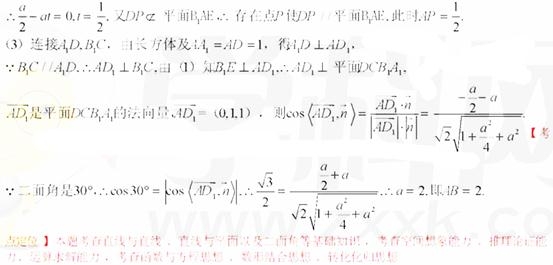 ∴ a/2 - at = 0, t = 1/2, 又DP⊄ 平面B₁AE, ∴ 存在点P使DP∥平面B₁AE, 此时AP = 1/2.
(3) 连接A₁D, B₁C, 由长方体及AA₁ = AD = 1, 得A₁D⊥AD₁,
∵ B₁C∥A₁D, ∴ AD₁⊥B₁C, 由 (1) 知B₁E⊥AD₁, ∴ AD₁⊥ 平面DCB₁A₁,
AD₁是平面DCB₁A₁的法向量, AD₁ = (0,1,1), 则cos⟨AD₁, n⟩ = (AD₁·n)/(|AD₁|·|n|) = (-a/2 - a)/(√2 √(1 + a²/4 + a²)). 【考
∵ 二面角是30°, ∴ cos30° = |cos⟨AD₁, n⟩|, ∴ √3/2 = (a/2 + a)/(√2 √(1 + a²/4 + a²)), ∴ a = 2, 即AB = 2.
点定位】本题考查直线与直线、直线与平面以及二面角等基础知识、考查空间想象能力、推理论证能
力、运算求解能力、考查函数与方程思想、数形结合思想、转化化归思想